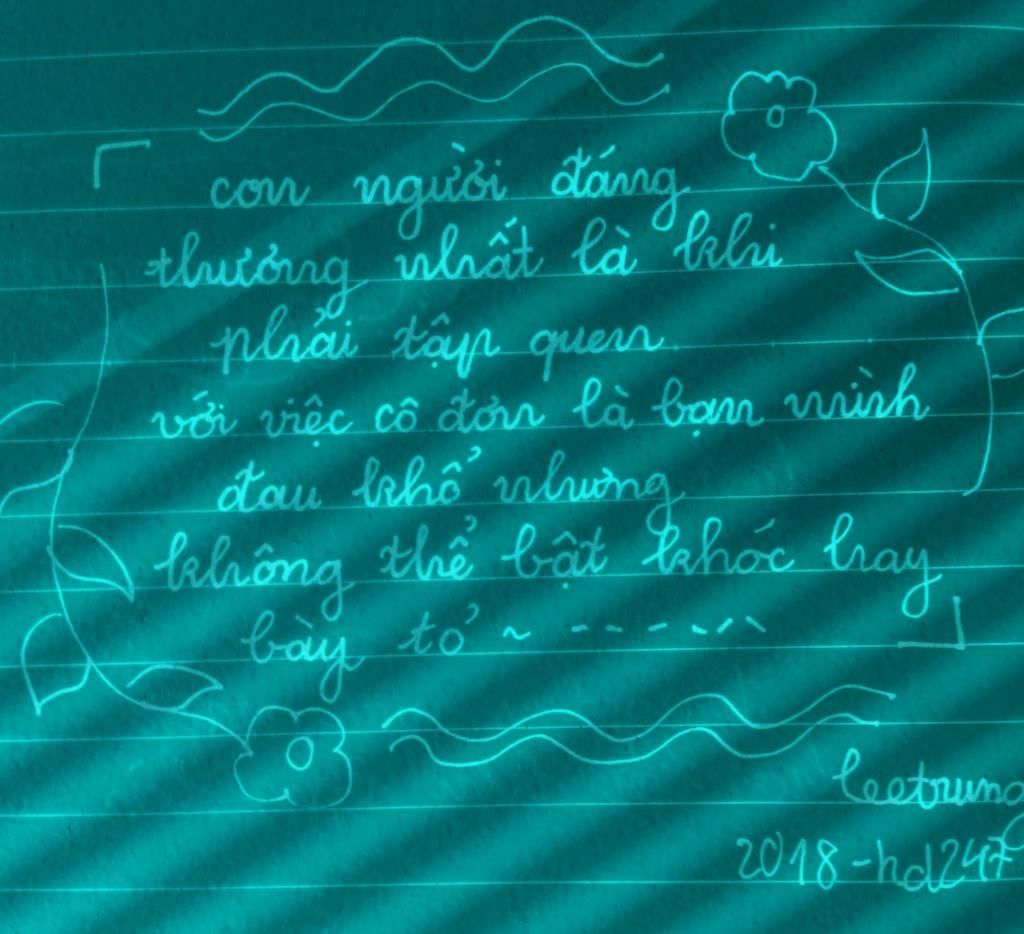 con người đáng
thương nhất là khi
phải tập quen
với việc cô đơn là bạn mình
đau khổ nhưng
không thể bật khóc hay
bày tỏ ~ - - - - - - -
leetrung
2018-hd247